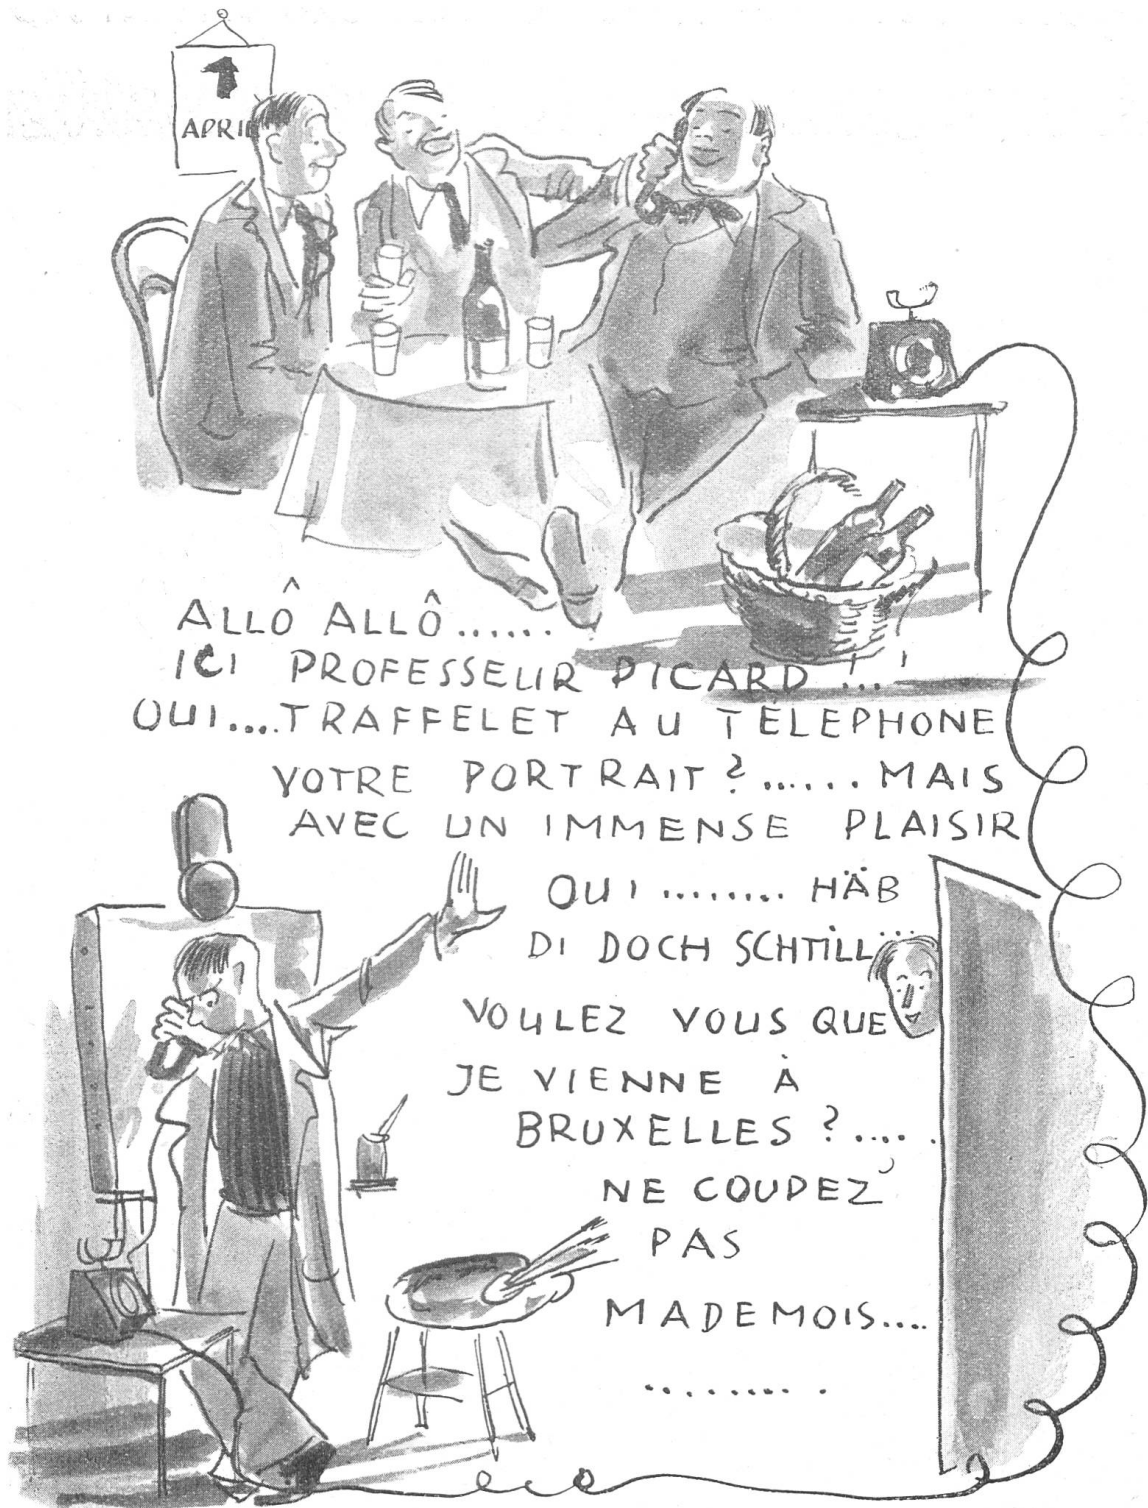 1
APRIL
ALLÔ ALLÔ......
ICI PROFESSEUR PICARD !..!
OUI....TRAFFELET AU TÉLEPHONE
VOTRE PORTRAIT ?...... MAIS
AVEC UN IMMENSE PLAISIR
OUI ........ HÄB
DI DOCH SCHTILL...
VOULEZ VOUS QUE
JE VIENNE À
BRUXELLES ?.....
NE COUPEZ
PAS
MADEMOIS....
.........